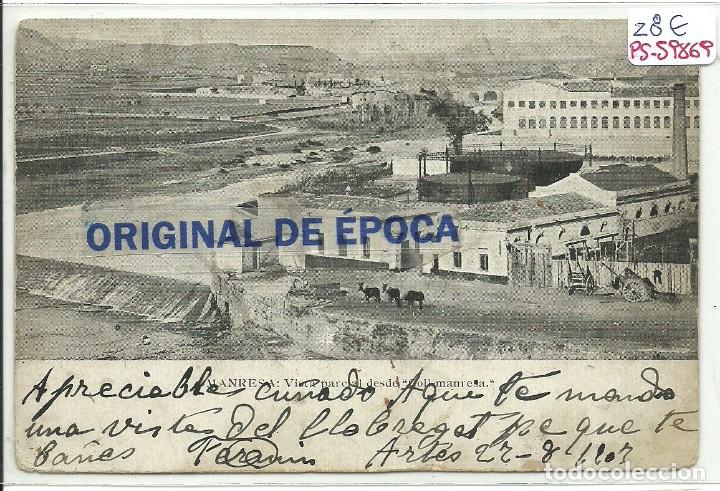 28 €
PS-59869
ORIGINAL DE ÉPOCA
MANRESA: Vista parcial desde "Collmanresa."
Apreciable cuñado Aqui te mando
una vista del Llobregat pa que te
bañes Artés 27-8
todocoleccion.net